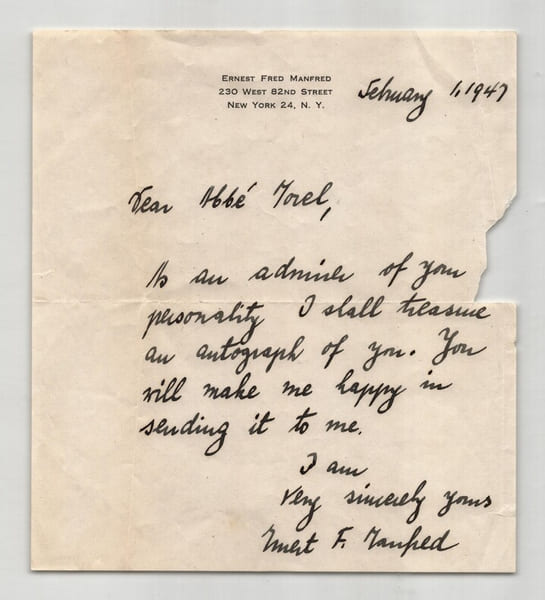 ERNEST FRED MANFRED
230 WEST 82ND STREET
NEW YORK 24, N. Y.
February 1, 1947
Dear Abbé Morel,
As an admirer of your
personality I shall treasure
an autograph of you. You
will make me happy in
sending it to me.
I am
very sincerely yours
Ernest F. Manfred